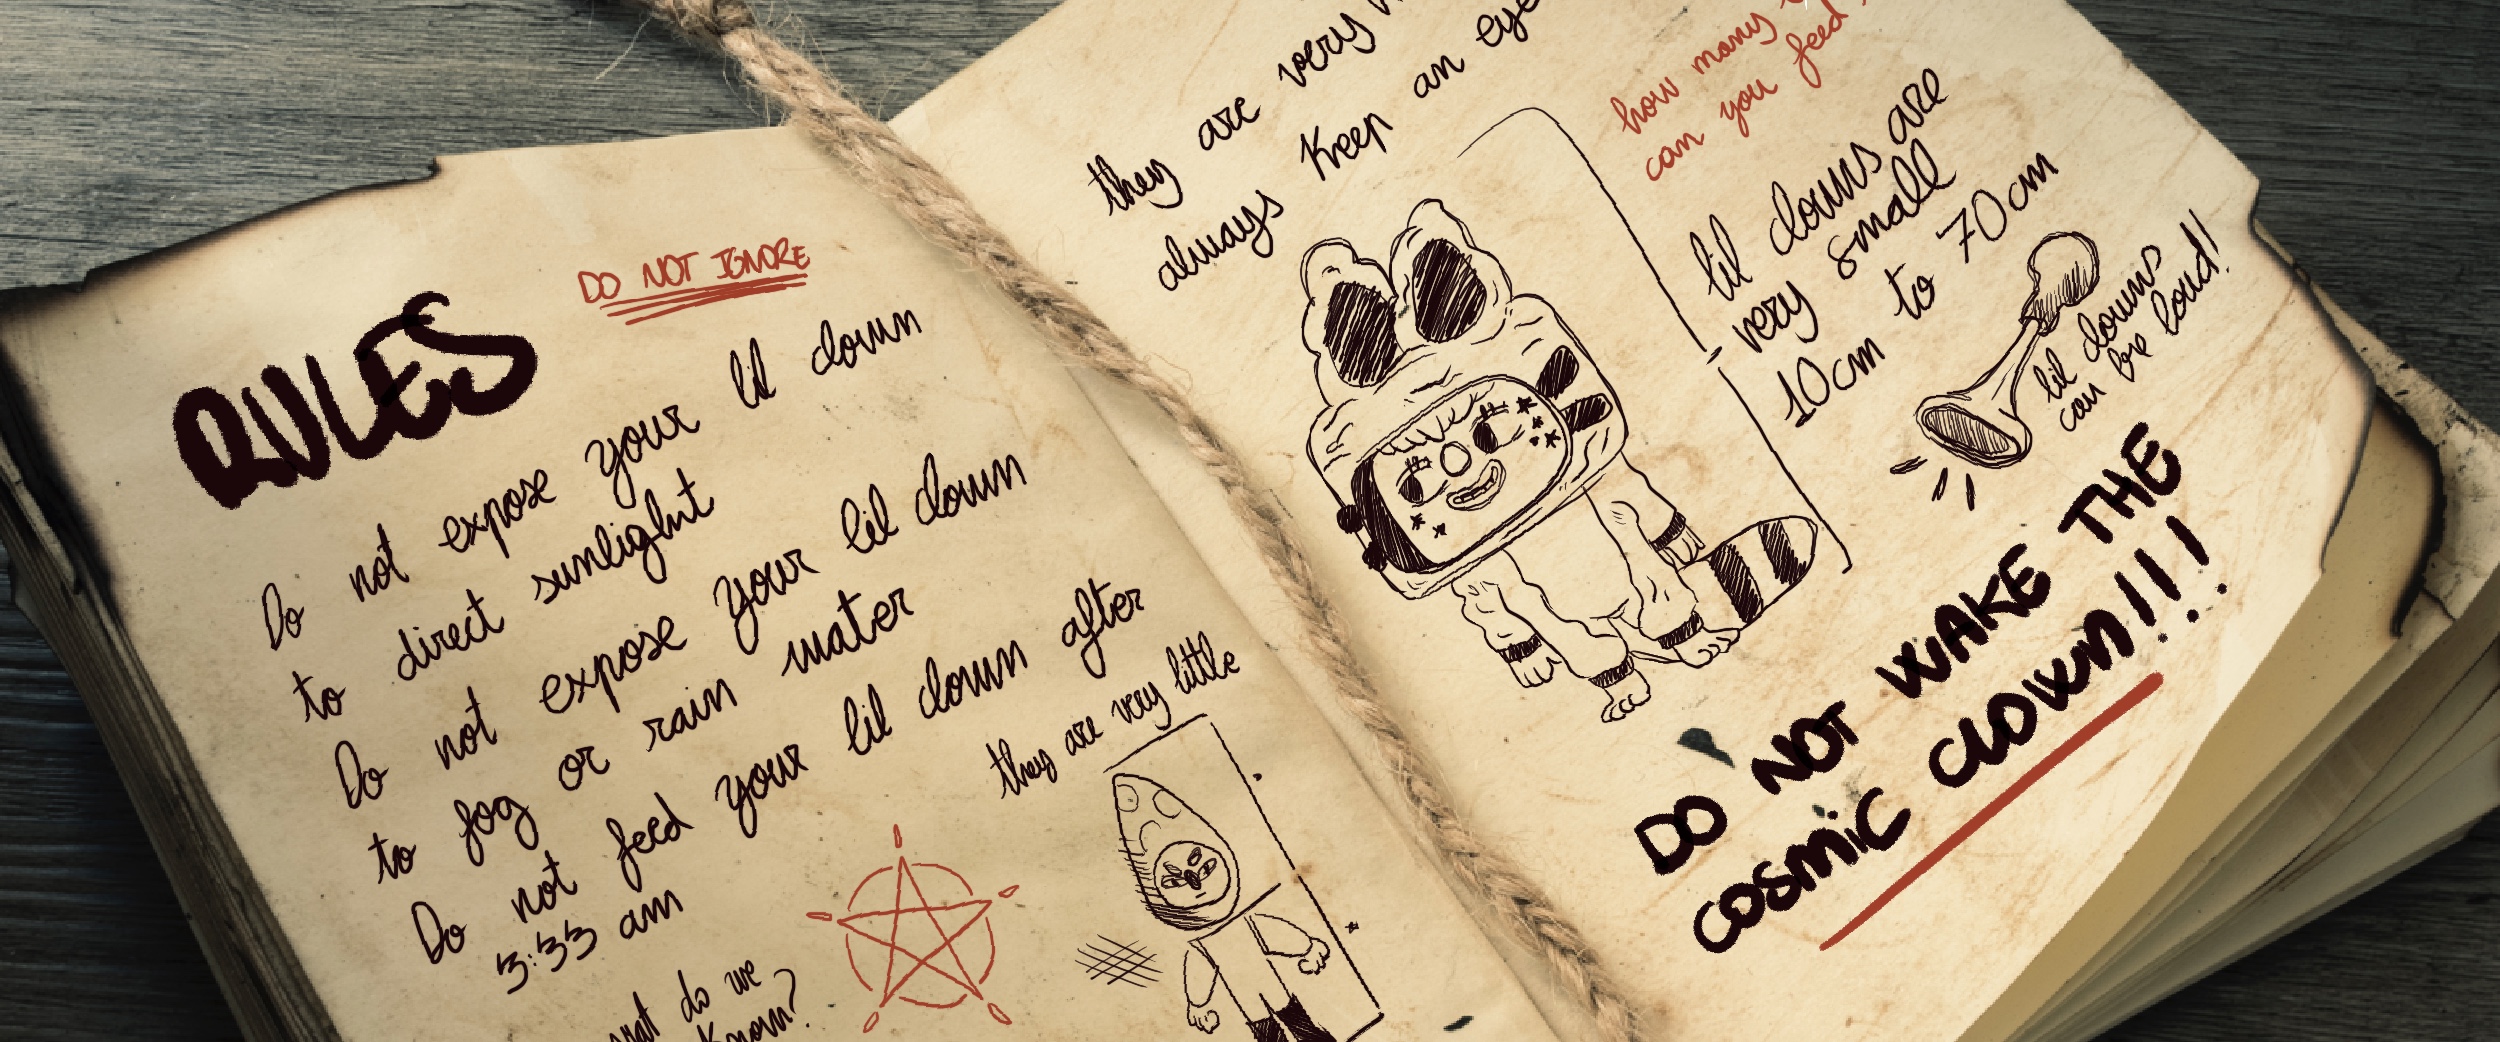 DO NOT IGNORE
RULES
Do not expose your lil clown
to direct sunlight
Do not expose your lil clown
to fog or rain water
Do not feed your lil clown after
3:33 am
what do we
know?
they are very little
they are very
always keep an eye
how many
can you feed
lil clowns are
very small
10cm to 70cm
lil clowns
can be loud!
DO NOT WAKE THE
COSMIC CLOWN!!!